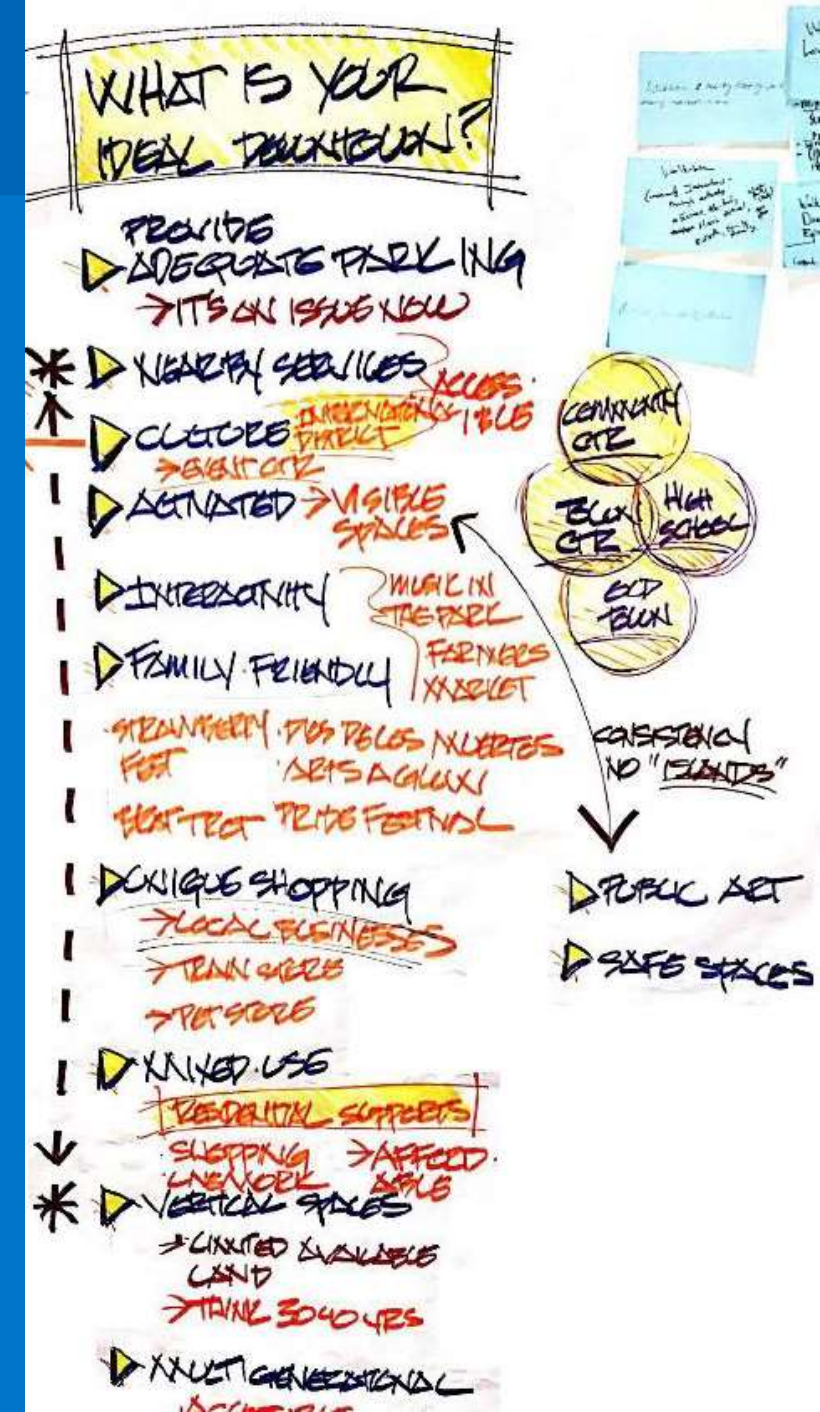 WHAT IS YOUR
IDEAL DOWNTOWN?
PROVIDE
ADEQUATE PARKING
→ IT'S AN ISSUE NOW
* NEARBY SERVICES
ACCESS·
IBLE
CULTURE
INTERNATIONAL
DISTRICT
→ EVENT CTR
ACTIVATED → VISIBLE
SPACES
INTERACTIVITY
MUSIC IN
THE PARK
FAMILY·FRIENDLY
FARMERS
MARKET
·STRAWBERRY
FEST
·DIAS DE LOS MUERTES
·ARTS AGLOW
PRIDE FESTIVAL
UNIQUE SHOPPING
→ LOCAL BUSINESSES
→ TRAIN STORE
→ PET STORE
MIXED·USE
RESIDENTIAL SUPPORTS
SHOPPING
→ AFFORD·
ABLE
·LIVE/WORK
* VERTICAL SPACES
→ LIMITED AVAILABLE
LAND
→ THINK 30 40 YRS
MULTI GENERATIONAL
ACCESSIBLE
COMMUNITY
CTR
TOWN
CTR
HIGH
SCHOOL
OLD
TOWN
CONSISTENCY
NO "ISLANDS"
PUBLIC ART
SAFE SPACES